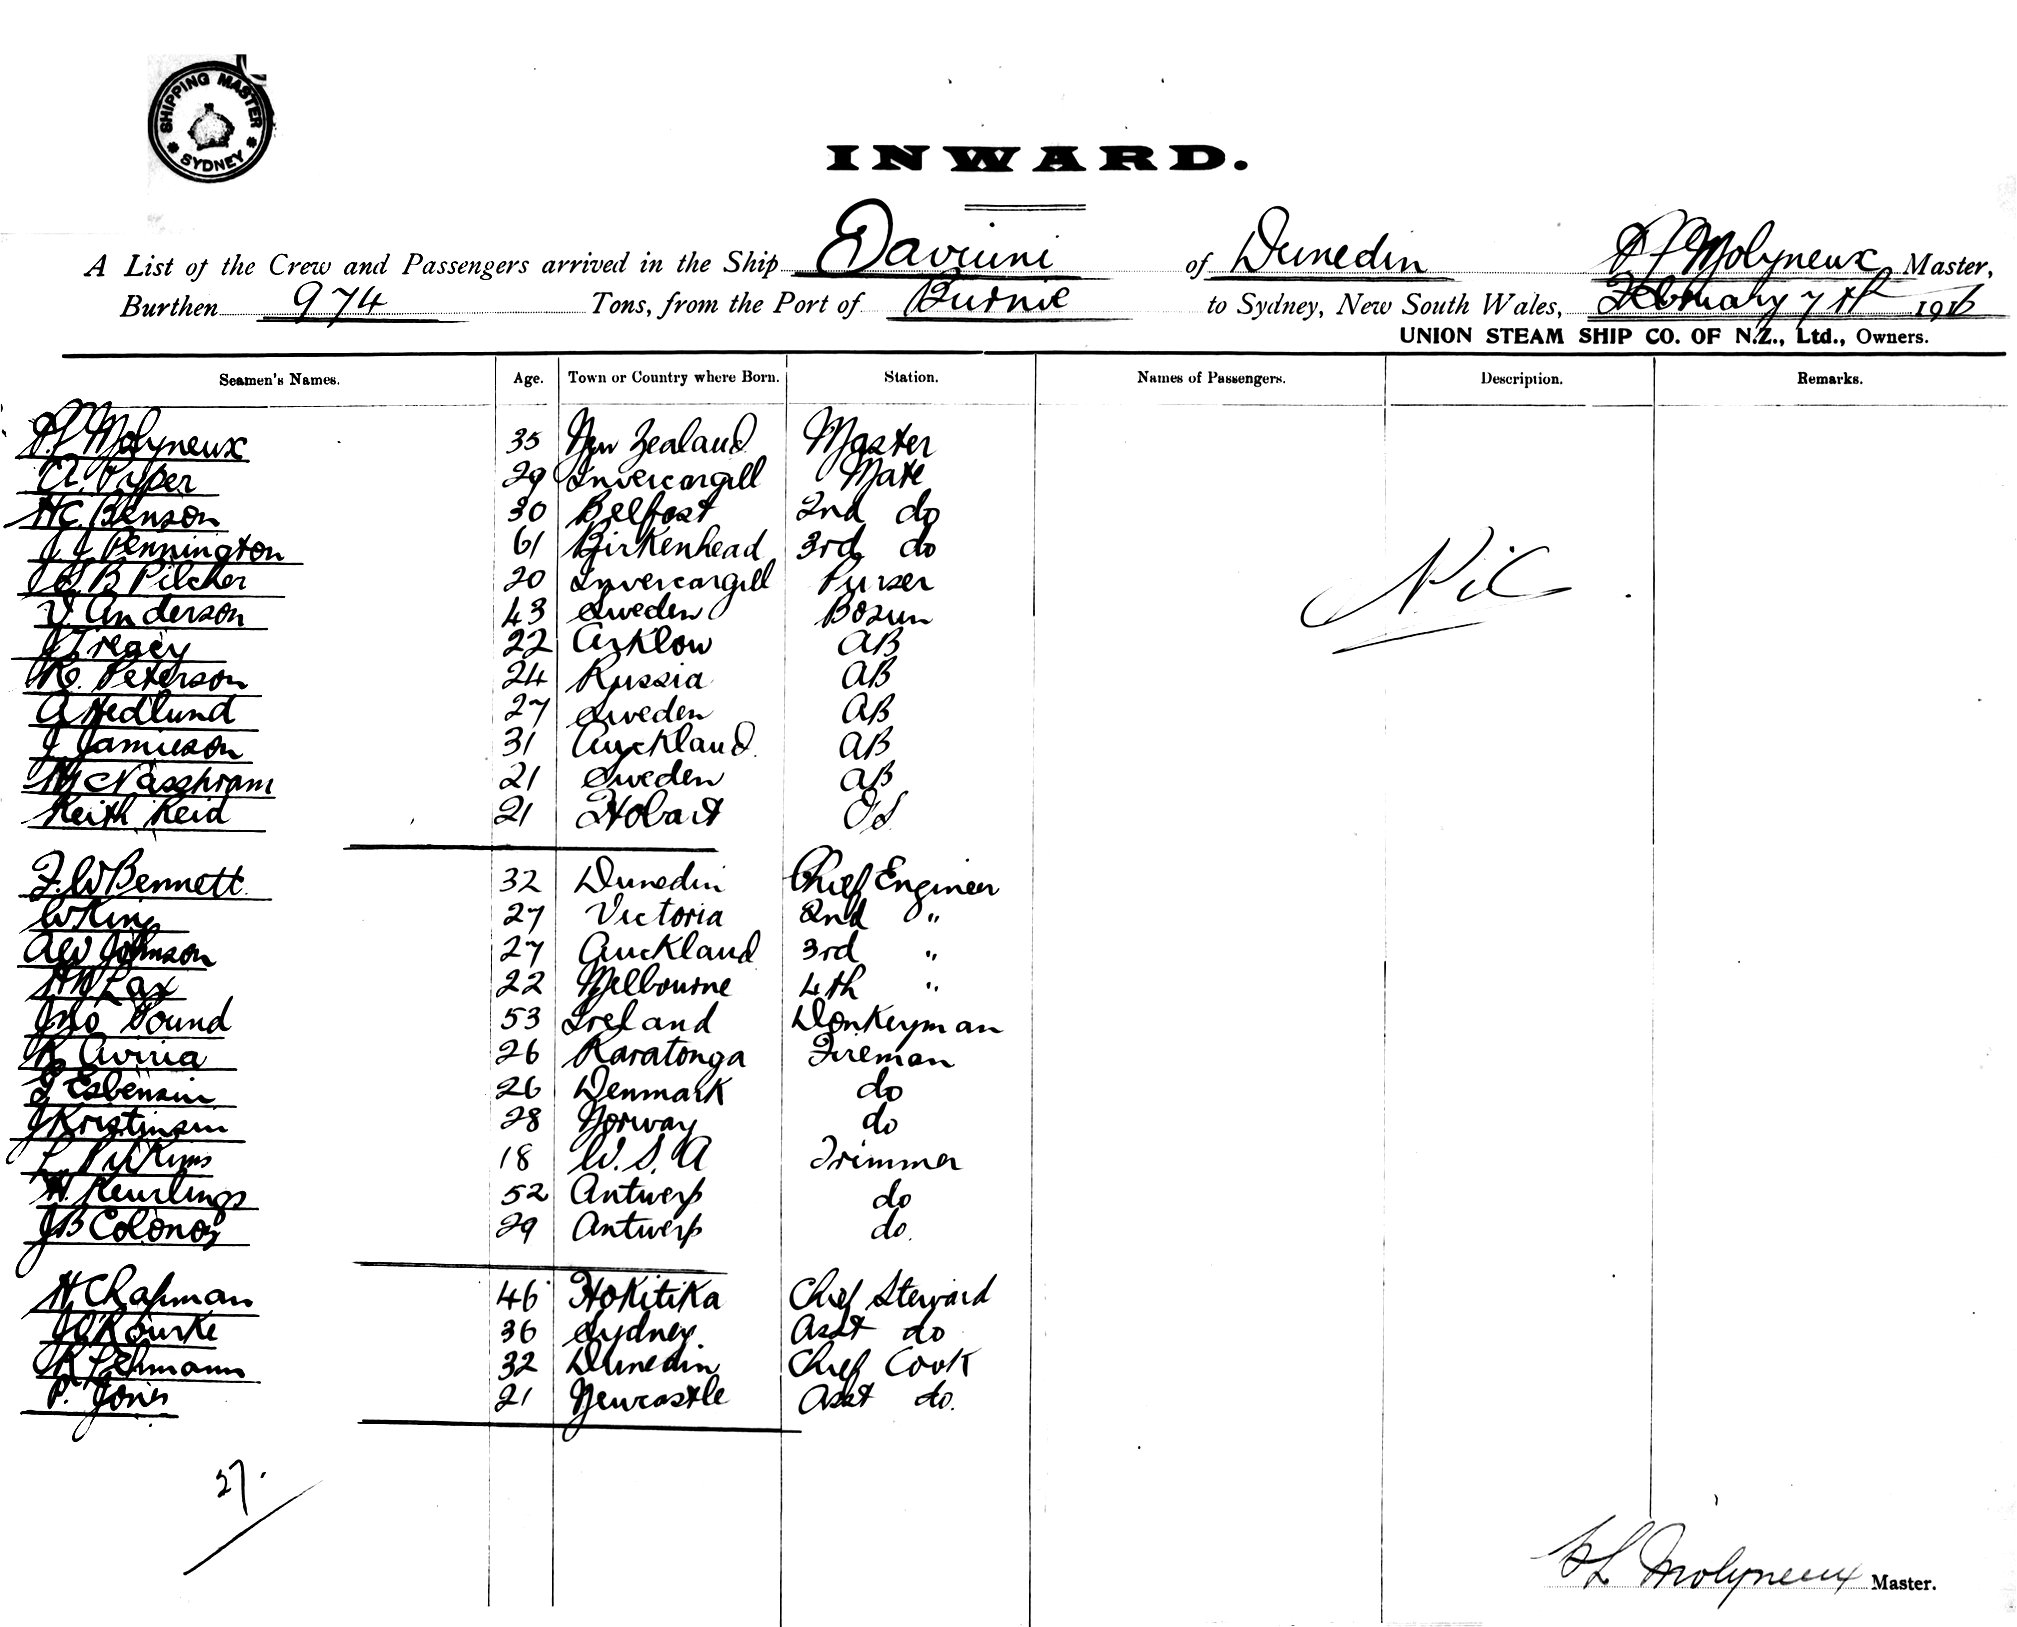 SHIPPING MASTER
SYDNEY
INWARD.
A List of the Crew and Passengers arrived in the Ship Daviuni of Dunedin Molyneux Master,
Burthen 974 Tons, from the Port of Burnie to Sydney, New South Wales, February 7th 1916
UNION STEAM SHIP CO. OF N.Z., Ltd., Owners.
Seamen's Names. Age. Town or Country where Born. Station. Names of Passengers. Description. Remarks.
Molyneux 35 New Zealand Master
A. Piper 29 Invercargill Mate
HC Benson 30 Belfast 2nd do
J J Pennington 61 Birkenhead 3rd do
B Pilcher 20 Invercargill Purser
V Anderson 43 Sweden Bosun
J Tregey 22 Arklow AB
R. Peterson 24 Russia AB
A Hedlund 27 Sweden AB
J Jamieson 31 Auckland AB
21 Sweden AB
Keith Reid 21 Hobart OS
Nil
F. W Bennett. 32 Dunedin Chief Engineer
W King 27 Victoria 2nd "
AW Johnson 27 Auckland 3rd "
Lax 22 Melbourne 4th "
Jno Pound 53 Ireland Donkeyman
26 Raratonga Fireman
Esbensin 26 Denmark do
J Kristinsin 28 Norway do
18 U.S.A Trimmer
H. Keurlings 52 Antwerp do
JB Colonos 29 Antwerp do.
H Chapman 46 Hokitika Chief Steward
J O'Rourke 36 Sydney Asst do
R Lehmann 32 Dunedin Chief Cook
P. Jones 21 Newcastle Asst do.
27.
Molyneux Master.